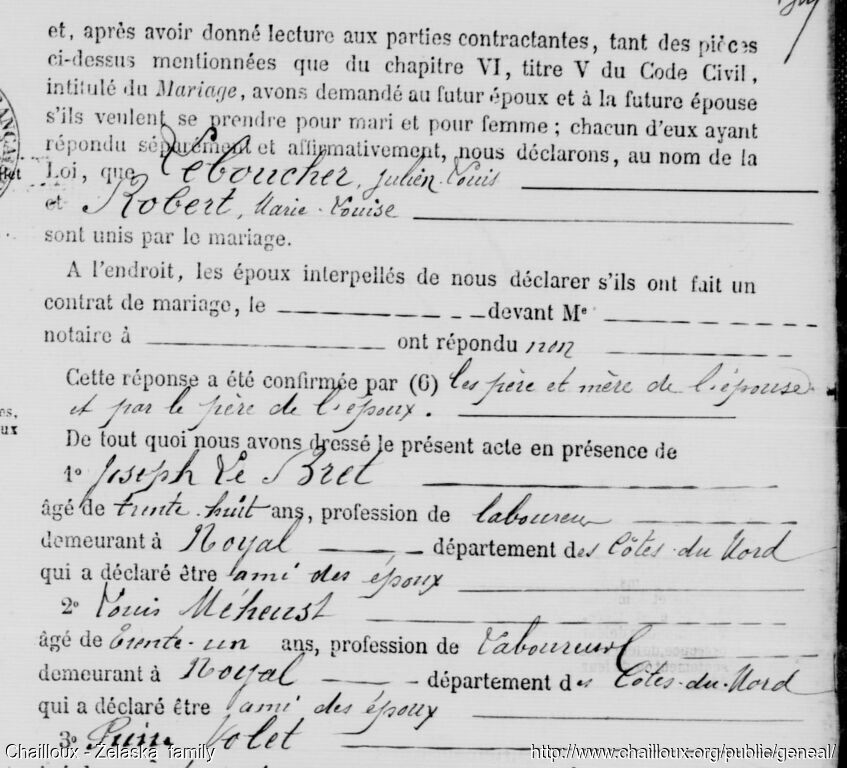 et, après avoir donné lecture aux parties contractantes, tant des pièces
ci-dessus mentionnées que du chapitre VI, titre V du Code Civil,
intitulé du Mariage, avons demandé au futur époux et à la future épouse
s'ils veulent se prendre pour mari et pour femme ; chacun d'eux ayant
répondu séparément et affirmativement, nous déclarons, au nom de la
Loi, que Leboucher, Julien-Louis
et Robert, Marie-Louise
sont unis par le mariage.
A l'endroit, les époux interpellés de nous déclarer s'ils ont fait un
contrat de mariage, le devant Me
notaire à ont répondu non
Cette réponse a été confirmée par (6) les père et mère de l'épouse
et par le père de l'époux.
De tout quoi nous avons dressé le présent acte en présence de
1o Joseph Le Bret
âgé de trente-huit ans, profession de laboureur
demeurant à Noyal département des Côtes-du-Nord
qui a déclaré être ami des époux
2o Louis Méheust
âgé de trente-un ans, profession de laboureur
demeurant à Noyal département des Côtes-du-Nord
qui a déclaré être ami des époux
3o Volet
Chailloux - Zelaska family http://www.chailloux.org/public/geneal/